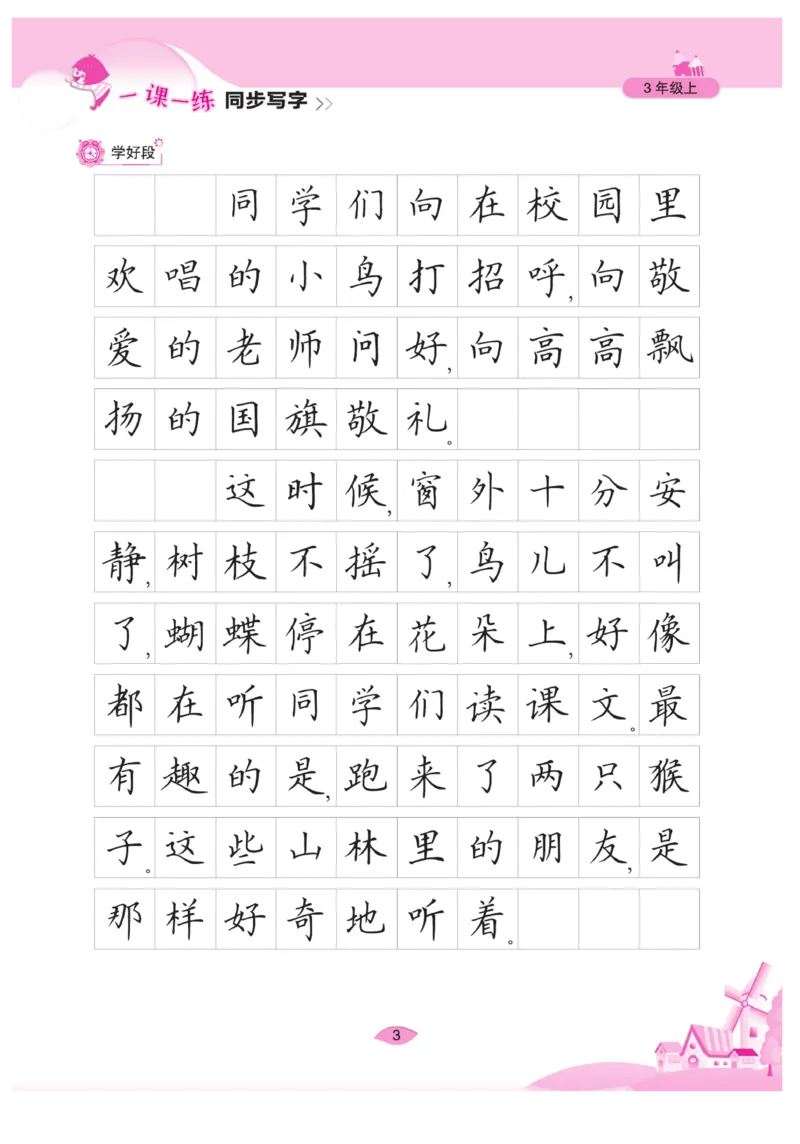 一课一练 同步写字
3年级上
学好段
同学们向在校园里
欢唱的小鸟打招呼,向敬
爱的老师问好,向高高飘
扬的国旗敬礼。
这时候,窗外十分安
静,树枝不摇了,鸟儿不叫
了,蝴蝶停在花朵上,好像
都在听同学们读课文。最
有趣的是,跑来了两只猴
子。这些山林里的朋友,是
那样好奇地听着。
3